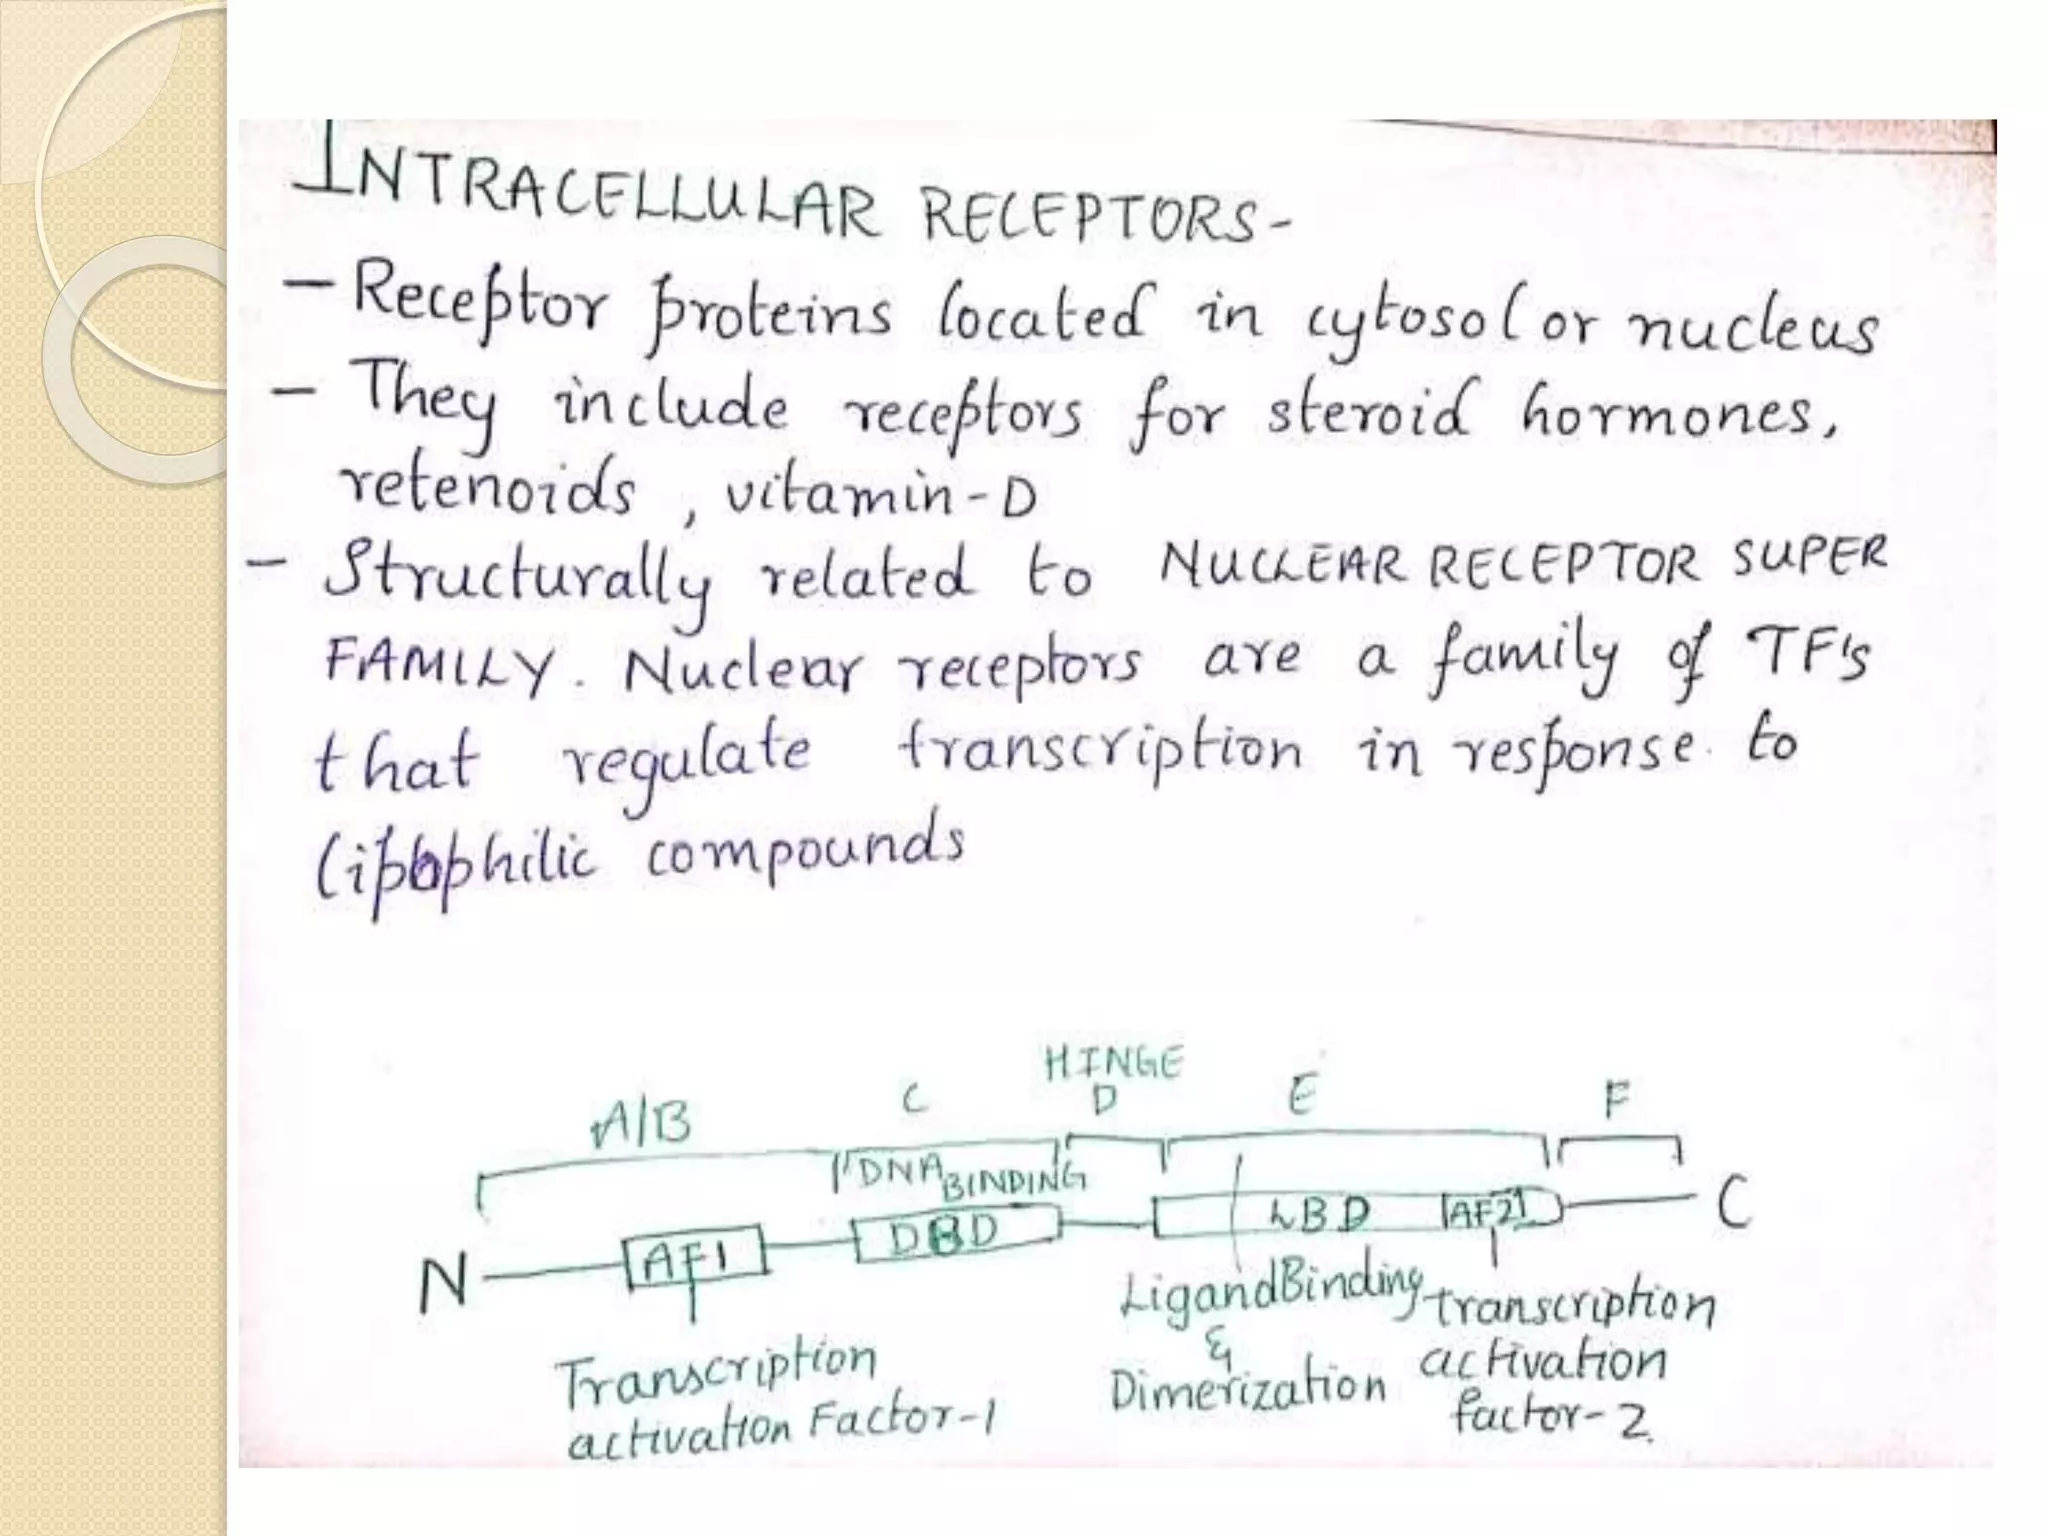 INTRACELLULAR RECEPTORS-
- Receptor proteins located in cytosol or nucleus
- They include receptors for steroid hormones,
retenoids, vitamin-D
- Structurally related to NUCLEAR RECEPTOR SUPER
FAMILY. Nuclear receptors are a family of TF's
that regulate transcription in response to
lipophilic compounds
HINGE
A/B C D E F
DNA BINDING
N AF1 DBD LBD AF2 C
Transcription
activation Factor-1
Ligand Binding
&
Dimerization
transcription
activation
factor-2.